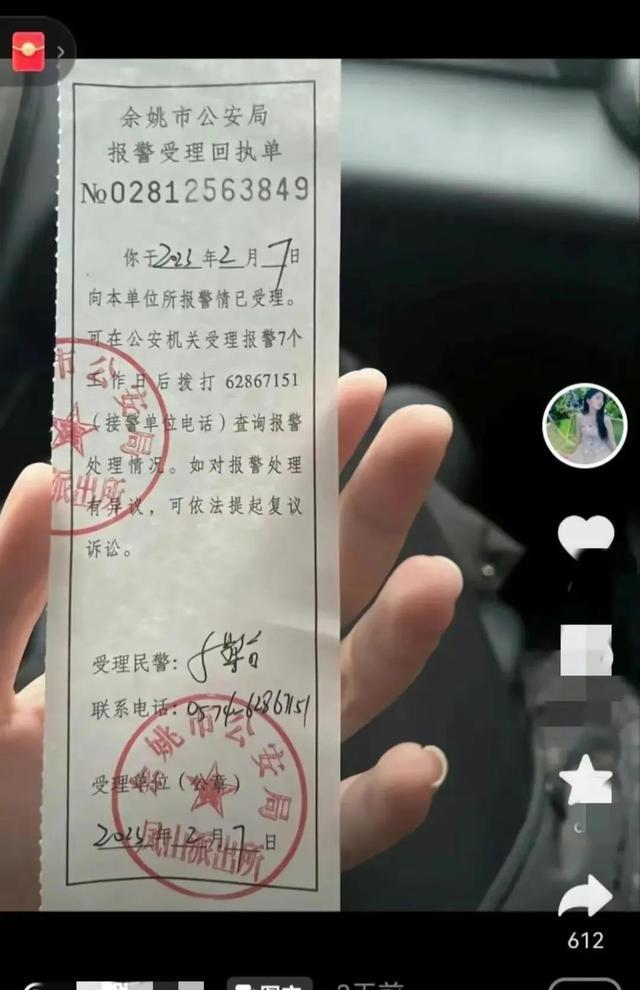 余姚市公安局
报警受理回执单
No02812563849
你于2023年2月7日
向本单位所报警情已受理。
可在公安机关受理报警7个
工作日后拨打 62867151
（接警单位电话）查询报警
处理情况。如对报警处理
有异议，可依法提起复议
诉讼。
市公安局
派出所
受理民警：
联系电话：0574-62867151
受理单位（公章）
2023年2月7日
余姚市公安局
凤山派出所
612